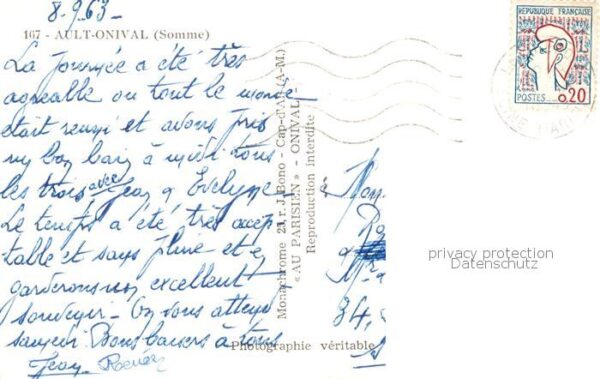 8.9.63
167 - AULT-ONIVAL (Somme)
La Journée a été très
agréable ou tout le monde
était reuni et avons pris
un bon bain à midi tous
les trois avec Jean & Evelyne
Le temps a été très accep
table et sans pluie et
garderons un excellent
souvenir. On vous attend
samedi. Bons baisers à tous
Jean Renée
Monochrome 21, r. J. Bono - Cap-d'Ail (A.-M.)
« AU PARISIEN » - ONIVAL -
Reproduction interdite
Photographie véritable
REPUBLIQUE FRANÇAISE
POSTES
0,20
34,
privacy protection
Datenschutz